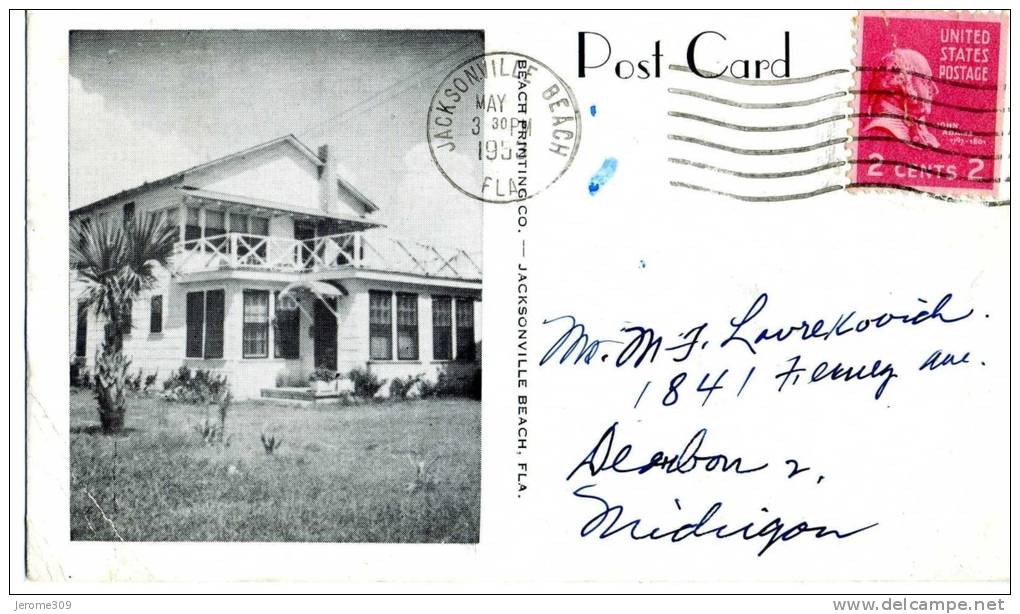 Post Card
UNITED
STATES
POSTAGE
JOHN
2 CENTS 2
JACKSONVILLE BEACH
MAY
3 30 PM
195
FLA
BEACH PRINTING CO. — JACKSONVILLE BEACH, FLA.
Mr. M. J. Lovrekovich.
1841 Ferney ave.
Dearbon 2,
Michigan
Jerome309
www.delcampe.net